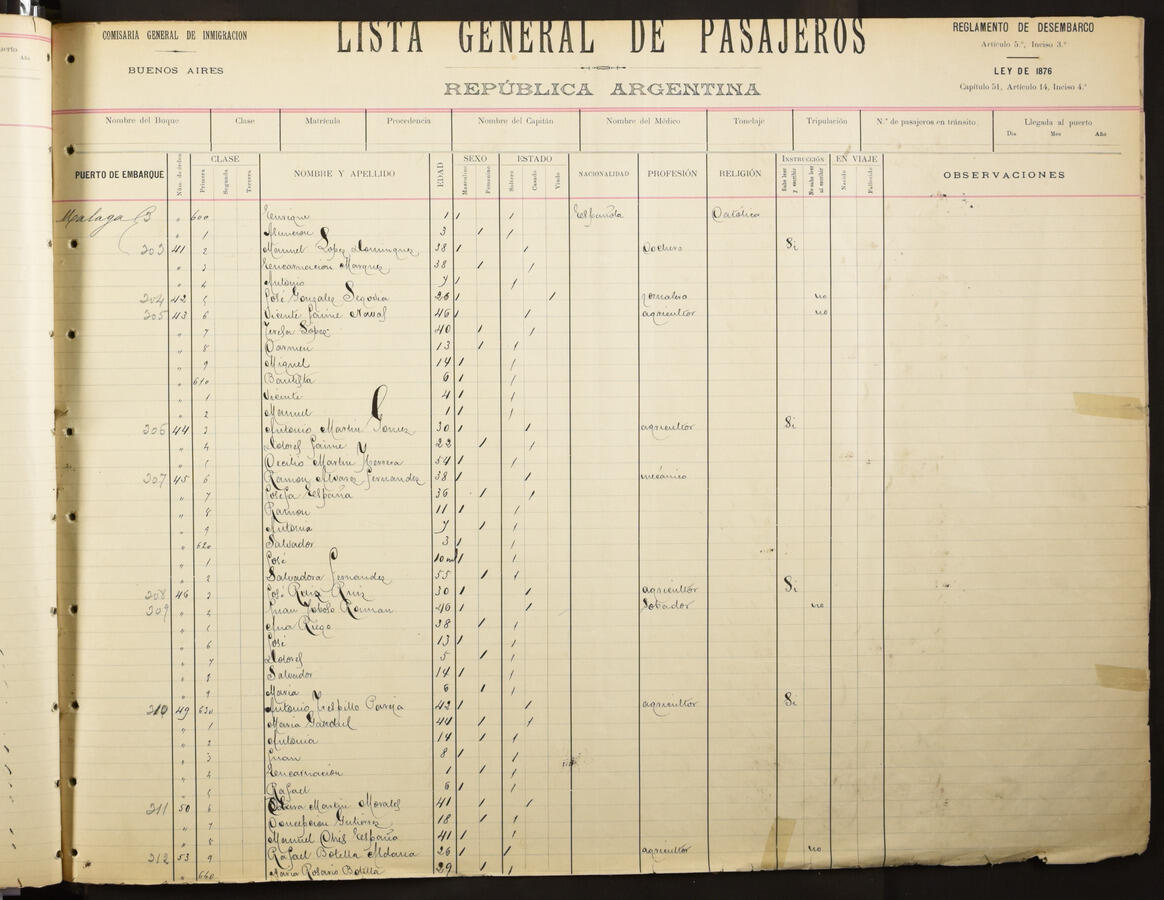 COMISARIA GENERAL DE INMIGRACION
BUENOS AIRES
LISTA GENERAL DE PASAJEROS
REPÚBLICA ARGENTINA
REGLAMENTO DE DESEMBARCO
Artículo 5.º, Inciso 3.º
LEY DE 1876
Capítulo 51, Artículo 14, Inciso 4.º
Nombre del Buque Clase Matrícula Procedencia Nombre del Capitán Nombre del Médico Tonelaje Tripulación N.º de pasajeros en tránsito Llegada al puerto
Dia Mes Año
PUERTO DE EMBARQUE Núm. de órden CLASE Primera Segunda Tercera NOMBRE Y APELLIDO EDAD SEXO Masculino Femenino ESTADO Soltero Casado Viudo NACIONALIDAD PROFESIÓN RELIGIÓN INSTRUCCIÓN Sabe leer y escribir No sabe leer ni escribir EN VIAJE Nacido Fallecido OBSERVACIONES
Malaga " 600 Enrique 1 / / Española Católica
" 1 Asuncion 3 / /
203 41 2 Manuel Lopez Dominguez 38 / / Si
" 3 Encarnacion Marquez 38 / /
" 4 Antonio 7 / /
204 42 5 José Gonzalez Segovia 26 / / jornalero no
205 43 6 Vicente Jaime Naval 46 / / agricultor no
" 7 Teresa Lopez 40 / /
" 8 Carmen 13 / /
" 9 Miguel 14 / /
" 610 Bautista 6 / /
" 1 Vicente 4 / /
" 2 Manuel 1 / /
206 44 3 Antonio Martin Gomez 30 / / agricultor Si
" 4 Dolores Jaime 22 / /
" 5 Cecilio Martin Herrera 54 / /
207 45 6 Ramon Alvarez Fernandez 38 / / mecánico
" 7 Josefa España 36 / /
" 8 Ramon 11 / /
" 9 Antonia 7 / /
" 620 Salvador 3 / /
" 1 José 10 m / /
" 2 Salvadora Fernandez 55 / / Si
208 46 3 José Ruiz Ruiz 30 / / agricultor
209 " Juan Roman 46 / / no
" Ana 38 / /
" 6 José 13 / /
" 7 Dolores 5 / /
" 8 Salvador 14 / /
" 9 Maria 6 / /
210 49 630 Antonio Pareja 42 / / agricultor Si
" 1 Maria 44 / /
" 2 Antonia 14 / /
" 3 Juan 8 / /
" 4 Encarnación 1 / /
" 5 Rafael 6 / /
211 50 6 Martin Morales 41 / /
" 7 Concepcion Gutierrez 18 / /
" 8 Manuel España 41 / /
212 53 9 Rafael Botella Aldana 26 / / agricultor no
" Maria Rosario Botella 29 / /